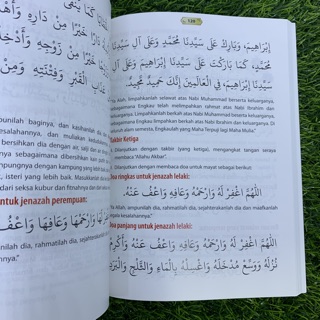 كَمَا يُنَقَّى
دَارًا خَيْرًا مِنْ دَارِهِ وَ
خَيْرًا مِنْ زَوْجِهِ وَأَدْخِلْهُ
عَذَابِ الْقَبْرِ وَفِتْنَتِهِ وَمِنْ
punilah baginya, dan kasihanilah dia,
kesalahannya, dan muliakanlah
bersihkan dia dengan air, salji dan air
sebagaimana dibersihkan kain
isteri yang lebih baik. Masukkanlah
dari seksa kubur dan fitnahnya dan dari
untuk jenazah perempuan:
لَهَا وَارْحَمْهَا وَعَافِهَا وَاعْفُ
punilah dia, rahmatilah dia, sejahterakanlah dia
nya."
139
إِبْرَاهِيمَ، وَبَارِكْ عَلَى سَيِّدِنَا مُحَمَّدٍ، وَعَلَى آلِ سَيِّدِنَا مُحَمَّدٍ
سَيِّدِنَا إِبْرَاهِيمَ، فِي الْعَالَمِينَ إِنَّكَ حَمِيدٌ مَجِيدٌ
"Ya Allah, limpahkanlah selawat atas Nabi Muhammad berserta keluarganya,
sebagaimana Engkau telah melimpahkan rahmat atas Nabi Ibrahim dan
keluarganya. Limpahkanlah berkat atas Nabi Muhammad berserta keluarganya,
sebagaimana Engkau limpahkan berkat atas Nabi Ibrahim dan keluarganya. Di
seluruh alam semesta, Engkaulah yang Maha Terpuji lagi Maha Mulia."
Takbir Ketiga
Dilanjutkan dengan takbir (yang ketiga), sambil mengangkat tangan seraya
membaca "Allahu Akbar".
Dilanjutkan dengan membaca doa untuk mayat sebagai berikut:
Doa ringkas untuk jenazah lelaki:
اَللّٰهُمَّ اغْفِرْ لَهُ وَارْحَمْهُ وَعَافِهِ وَاعْفُ عَنْهُ
"Ya Allah, ampunilah dia, rahmatilah dia, sejahterakanlah dia dan maafkanlah
segala kesalahannya."
Doa panjang untuk jenazah lelaki:
اَللّٰهُمَّ اغْفِرْ لَهُ وَارْحَمْهُ وَعَافِهِ وَاعْفُ عَنْهُ وَأَكْرِمْ
نُزُلَهُ وَوَسِّعْ مُدْخَلَهُ وَاغْسِلْهُ بِالْمَاءِ وَالثَّلْجِ وَالْبَرَدِ